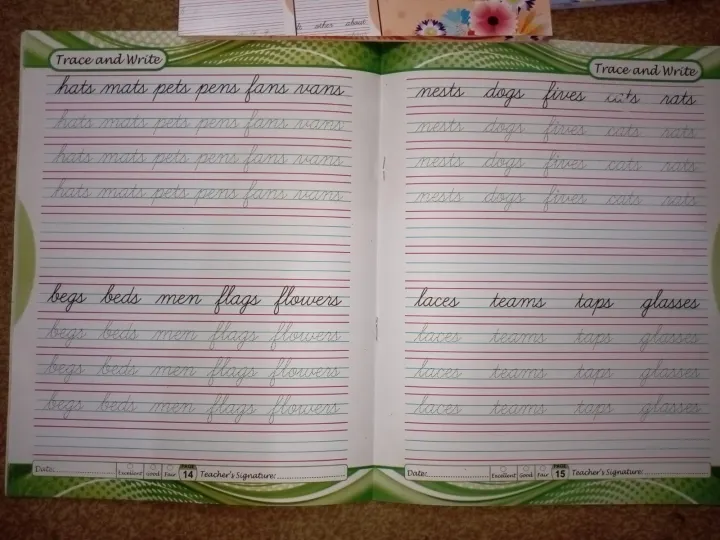 other about
Trace and Write
hats mats pets pens fans vans
hats mats pets pens fans vans
hats mats pets pens fans vans
hats mats pets pens fans vans
begs beds men flags flowers
begs beds men flags flowers
begs beds men flags flowers
begs beds men flags flowers
Date: Excellent Good Fair PAGE 14 Teacher's Signature:
Trace and Write
nests dogs fives cats rats
nests dogs fives cats rats
nests dogs fives cats rats
nests dogs fives cats rats
laces teams taps glasses
laces teams taps glasses
laces teams taps glasses
laces teams taps glasses
Date: Excellent Good Fair PAGE 15 Teacher's Signature: